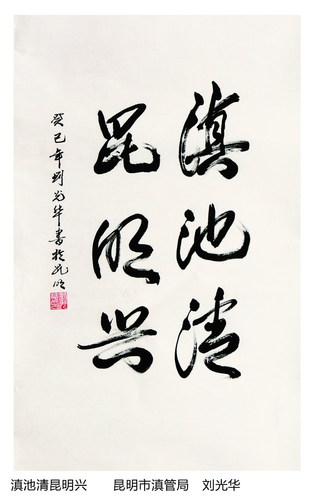 滇池清
昆明兴
癸巳年刘光华书于昆明
滇池清昆明兴 昆明市滇管局 刘光华